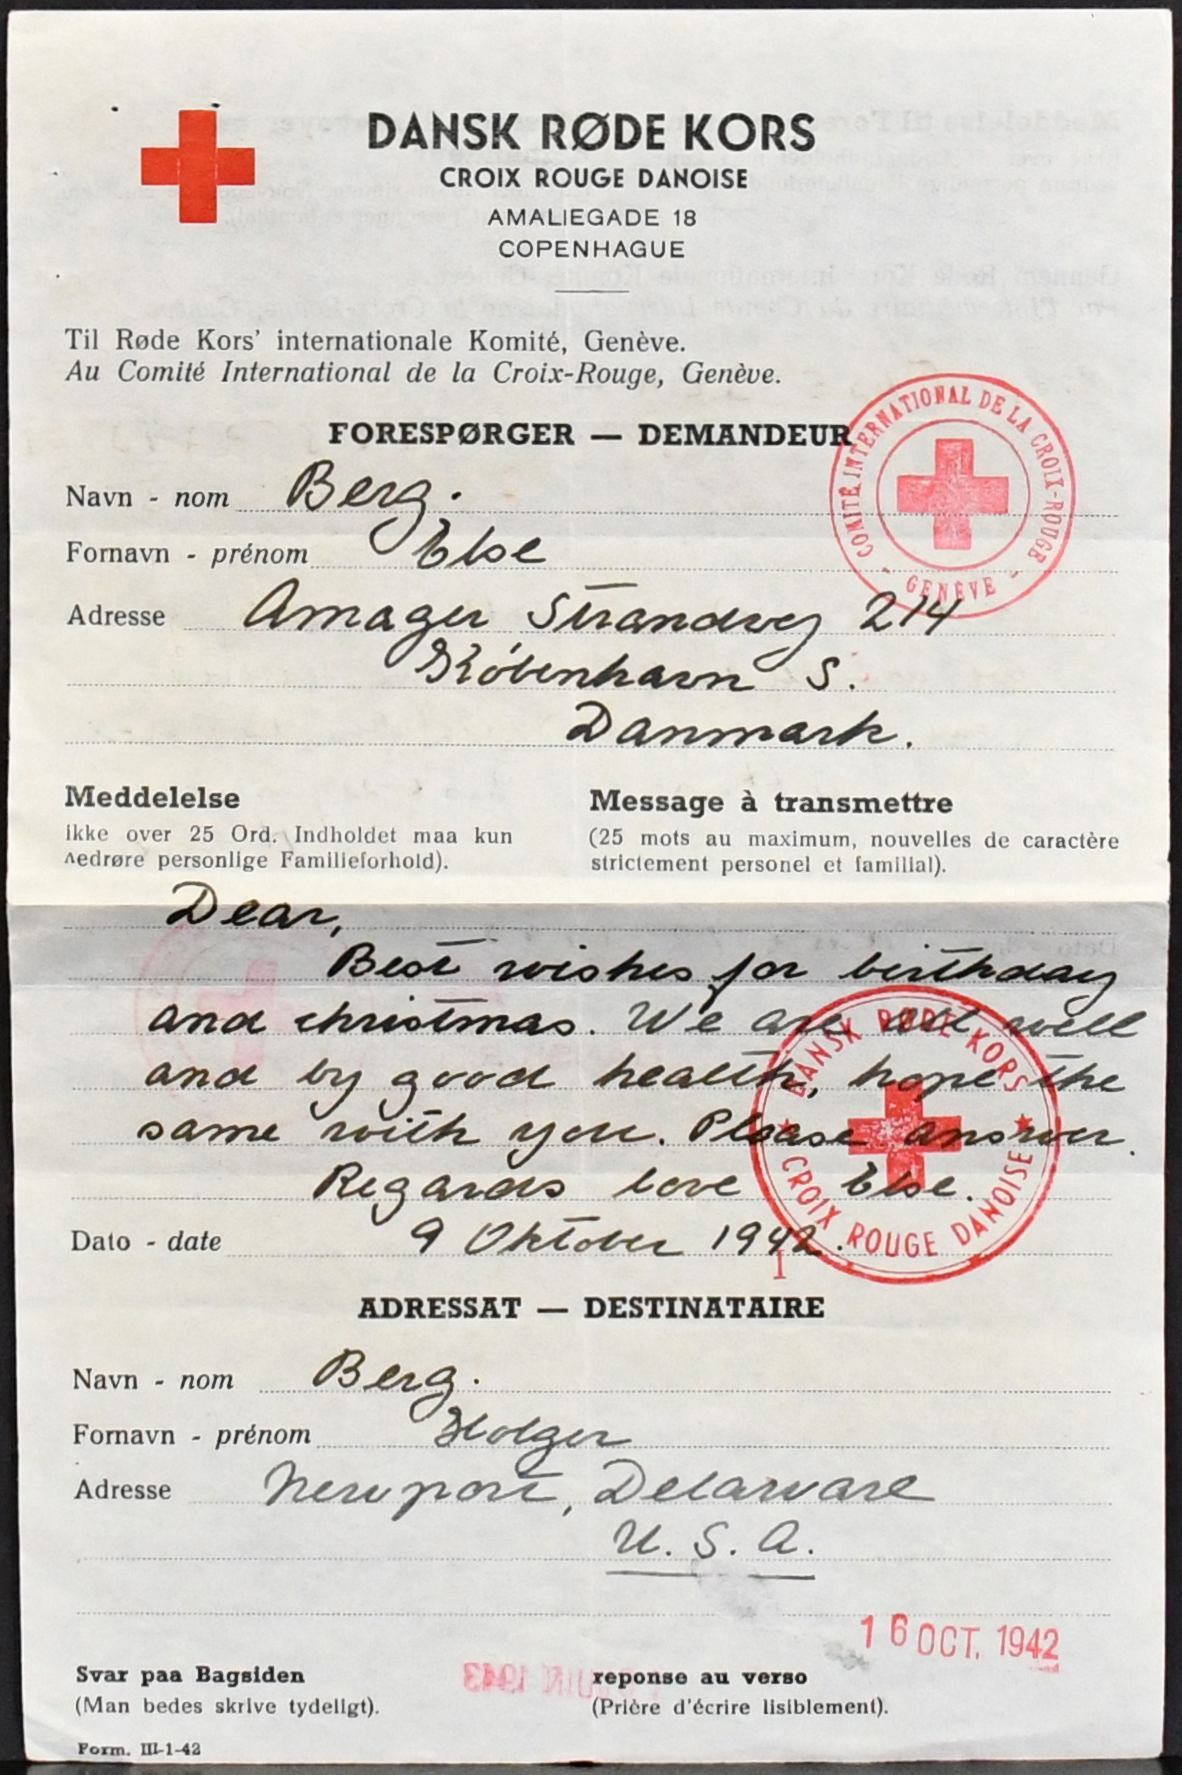 DANSK RØDE KORS
CROIX ROUGE DANOISE
AMALIEGADE 18
COPENHAGUE
Til Røde Kors' internationale Komité, Genève.
Au Comité International de la Croix-Rouge, Genève.
COMITÉ INTERNATIONAL DE LA CROIX-ROUGE
- GENÈVE -
FORESPØRGER — DEMANDEUR
Navn - nom Berg.
Fornavn - prénom Else
Adresse Amager Strandvej 214
København S.
Danmark.
Meddelelse
ikke over 25 Ord. Indholdet maa kun
vedrøre personlige Familieforhold).
Message à transmettre
(25 mots au maximum, nouvelles de caractère
strictement personel et familial).
Dear,
Best wishes for birthday
and christmas. We are all well
and by good health, hope the
same with you. Please answer.
Regards love Else.
DANSK RØDE KORS
CROIX ROUGE DANOISE
Dato - date 9 Oktober 1942.
I
ADRESSAT — DESTINATAIRE
Navn - nom Berg.
Fornavn - prénom Holger
Adresse Newport, Delaware
U. S. A.
16 OCT. 1942
Svar paa Bagsiden
(Man bedes skrive tydeligt).
reponse au verso
(Prière d'écrire lisiblement).
JUIN 1943
Form. III-1-42